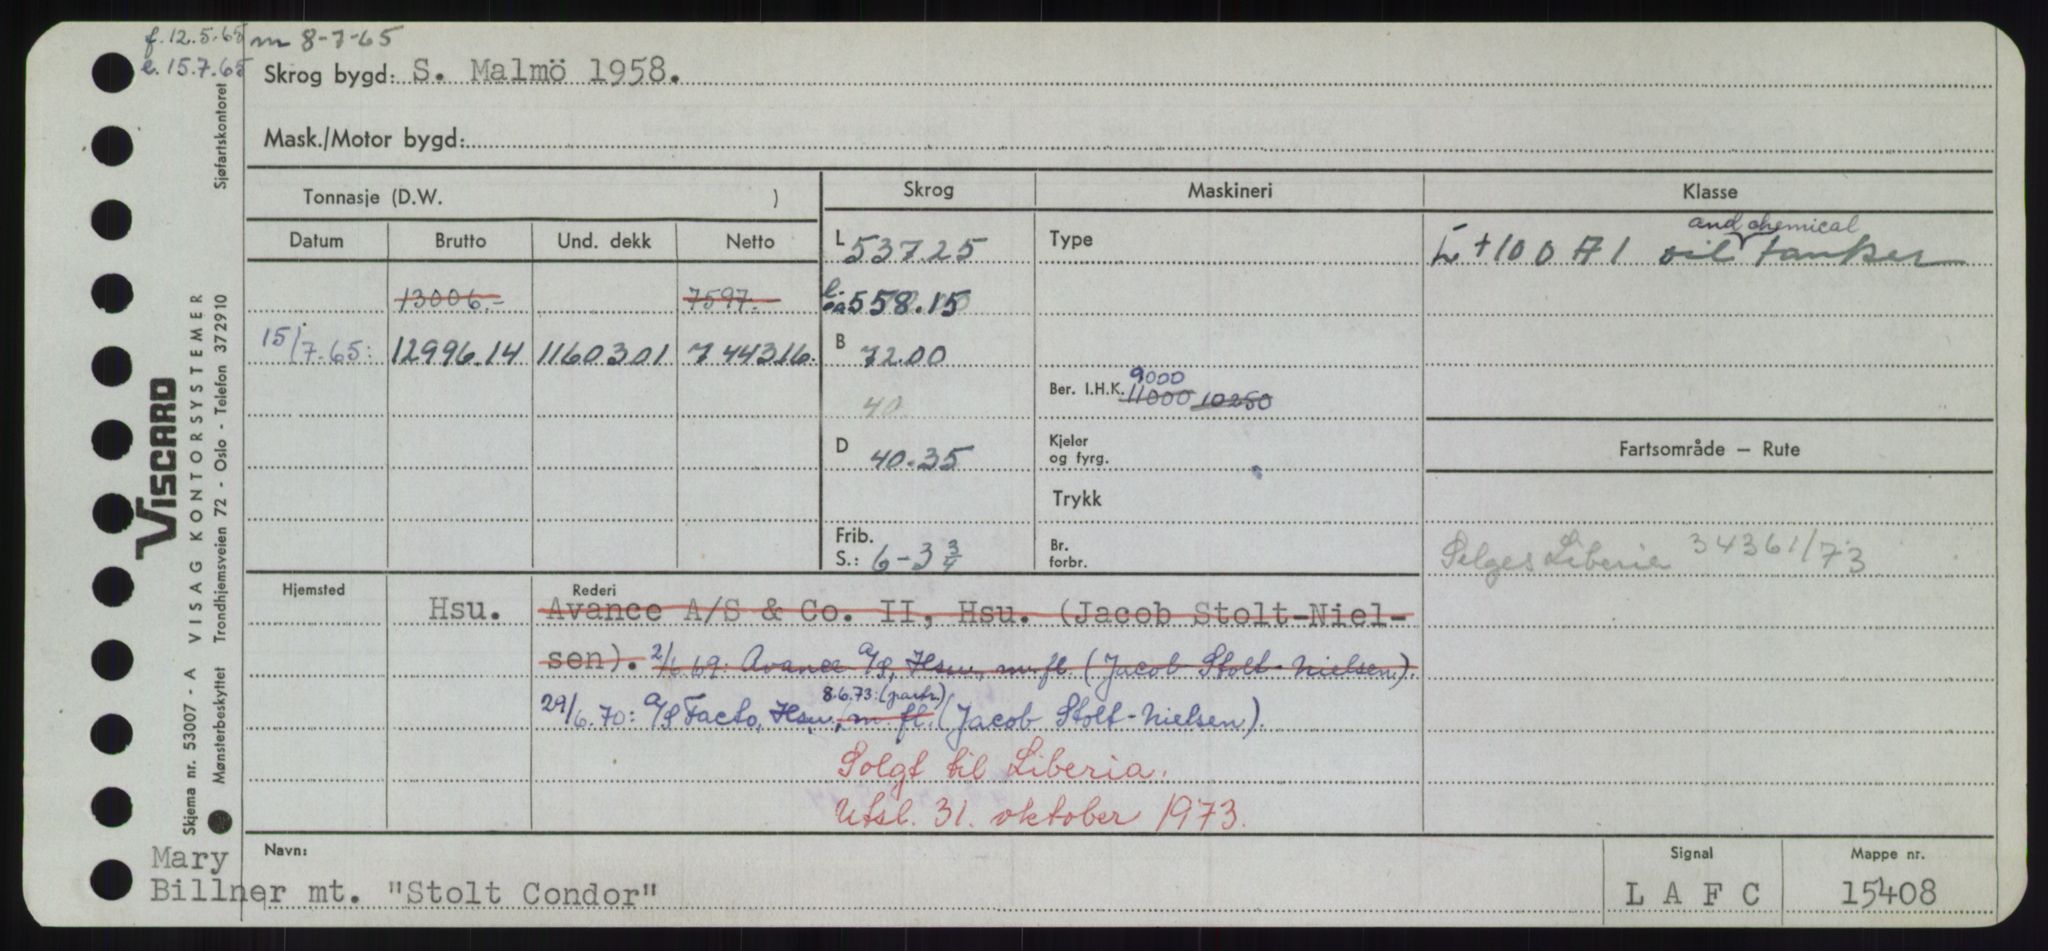 f. 12.5.65 m 8-7-65
e. 15.7.65
Skrog bygd: S. Malmö 1958.
Mask./Motor bygd:
Tonnasje (D.W. )
Skrog Maskineri Klasse
Datum Brutto Und. dekk Netto
L 537.25 Type
and chemical
+100 A1 oil tanker
13006.- 7597.-
558.15
15/7-65: 12996.14 11603.01 7443.16.
B 72.00
40
Ber. I.H.K. 9000
11000 10250
D 40.35
Kjeler
og fyrg.
Fartsområde — Rute
Trykk
Frib.
S.: 6-3 3/4
Br.
forbr.
Selges Liberia 34361/73
Hjemsted Hsu.
Rederi
Avance A/S & Co. II, Hsu. (Jacob Stolt-Niel-
sen). 2/6.69: Avance A/S, Hsu, m.fl. (Jacob Stolt-Nielsen).
8.6.73: (partr.)
29/6.70: A/S Facto, Hsu, m. fl. (Jacob Stolt-Nielsen).
Solgt til Liberia.
Utsl. 31. oktober 1973.
Navn:
Mary
Billner mt. "Stolt Condor"
Signal
L A F C
Mappe nr.
15408
VISCARD
Skjema nr. 53007 - A VISAG KONTORSYSTEMER
Mønsterbeskyttet Trondhjemsveien 72 - Oslo - Telefon 372910 Sjøfartskontoret